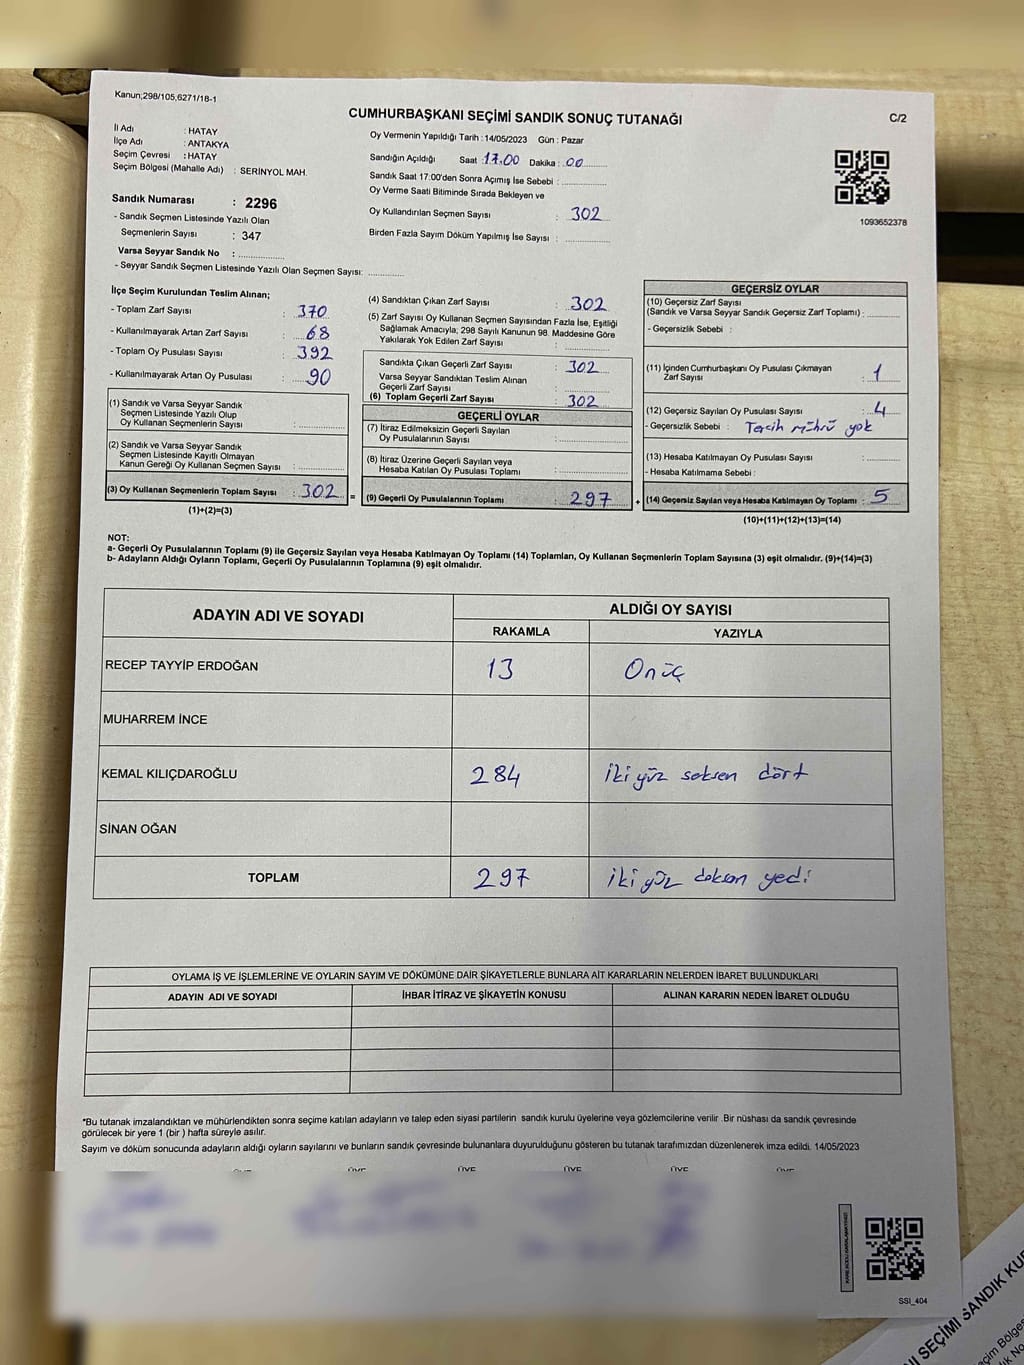 Kanun;298/105,6271/18-1
CUMHURBAŞKANI SEÇİMİ SANDIK SONUÇ TUTANAĞI
C/2
İl Adı : HATAY
İlçe Adı : ANTAKYA
Seçim Çevresi : HATAY
Seçim Bölgesi (Mahalle Adı) : SERİNYOL MAH.
Sandık Numarası : 2296
- Sandık Seçmen Listesinde Yazılı Olan
Seçmenlerin Sayısı : 347
Varsa Seyyar Sandık No :
- Seyyar Sandık Seçmen Listesinde Yazılı Olan Seçmen Sayısı:
Oy Vermenin Yapıldığı Tarih : 14/05/2023 Gün : Pazar
Sandığın Açıldığı Saat 17.00 Dakika : 00
Sandık Saat 17:00'den Sonra Açımış İse Sebebi :
Oy Verme Saati Bitiminde Sırada Bekleyen ve
Oy Kullandırılan Seçmen Sayısı : 302
Birden Fazla Sayım Döküm Yapılmış İse Sayısı :
1093652378
İlçe Seçim Kurulundan Teslim Alınan;
- Toplam Zarf Sayısı : 370
- Kullanılmayarak Artan Zarf Sayısı : 68
- Toplam Oy Pusulası Sayısı : 392
- Kullanılmayarak Artan Oy Pusulası : 90
(1) Sandık ve Varsa Seyyar Sandık
Seçmen Listesinde Yazılı Olup
Oy Kullanan Seçmenlerin Sayısı :
(2) Sandık ve Varsa Seyyar Sandık
Seçmen Listesinde Kayıtlı Olmayan
Kanun Gereği Oy Kullanan Seçmen Sayısı :
(3) Oy Kullanan Seçmenlerin Toplam Sayısı : 302 =
(1)+(2)=(3)
(4) Sandıktan Çıkan Zarf Sayısı : 302
(5) Zarf Sayısı Oy Kullanan Seçmen Sayısından Fazla İse, Eşitliği
Sağlamak Amacıyla; 298 Sayılı Kanunun 98. Maddesine Göre
Yakılarak Yok Edilen Zarf Sayısı :
Sandıkta Çıkan Geçerli Zarf Sayısı : 302
Varsa Seyyar Sandıktan Teslim Alınan
Geçerli Zarf Sayısı :
(6) Toplam Geçerli Zarf Sayısı : 302
GEÇERLİ OYLAR
(7) İtiraz Edilmeksizin Geçerli Sayılan
Oy Pusulalarının Sayısı :
(8) İtiraz Üzerine Geçerli Sayılan veya
Hesaba Katılan Oy Pusulası Toplamı :
(9) Geçerli Oy Pusulalarının Toplamı : 297 +
GEÇERSİZ OYLAR
(10) Geçersiz Zarf Sayısı
(Sandık ve Varsa Seyyar Sandık Geçersiz Zarf Toplamı) :
- Geçersizlik Sebebi :
(11) İçinden Cumhurbaşkanı Oy Pusulası Çıkmayan
Zarf Sayısı : 1
(12) Geçersiz Sayılan Oy Pusulası Sayısı : 4
- Geçersizlik Sebebi : Tercih mührü yok
(13) Hesaba Katılmayan Oy Pusulası Sayısı :
- Hesaba Katılmama Sebebi :
(14) Geçersiz Sayılan veya Hesaba Katılmayan Oy Toplamı : 5
(10)+(11)+(12)+(13)=(14)
NOT:
a- Geçerli Oy Pusulalarının Toplamı (9) ile Geçersiz Sayılan veya Hesaba Katılmayan Oy Toplamı (14) Toplamları, Oy Kullanan Seçmenlerin Toplam Sayısına (3) eşit olmalıdır. (9)+(14)=(3)
b- Adayların Aldığı Oyların Toplamı, Geçerli Oy Pusulalarının Toplamına (9) eşit olmalıdır.
ADAYIN ADI VE SOYADI
ALDIĞI OY SAYISI
RAKAMLA YAZIYLA
RECEP TAYYİP ERDOĞAN 13 Onüç
MUHARREM İNCE
KEMAL KILIÇDAROĞLU 284 iki yüz seksen dört
SİNAN OĞAN
TOPLAM 297 iki yüz doksan yedi
OYLAMA İŞ VE İŞLEMLERİNE VE OYLARIN SAYIM VE DÖKÜMÜNE DAİR ŞİKAYETLERLE BUNLARA AİT KARARLARIN NELERDEN İBARET BULUNDUKLARI
ADAYIN ADI VE SOYADI İHBAR İTİRAZ VE ŞİKAYETİN KONUSU ALINAN KARARIN NEDEN İBARET OLDUĞU
*Bu tutanak imzalandıktan ve mühürlendikten sonra seçime katılan adayların ve talep eden siyasi partilerin sandık kurulu üyelerine veya gözlemcilerine verilir .Bir nüshası da sandık çevresinde
görülecek bir yere 1 (bir ) hafta süreyle asılır.
Sayım ve döküm sonucunda adayların aldığı oyların sayılarını ve bunların sandık çevresinde bulunanlara duyurulduğunu gösteren bu tutanak tarafımızdan düzenlenerek imza edildi. 14/05/2023
SSI_404